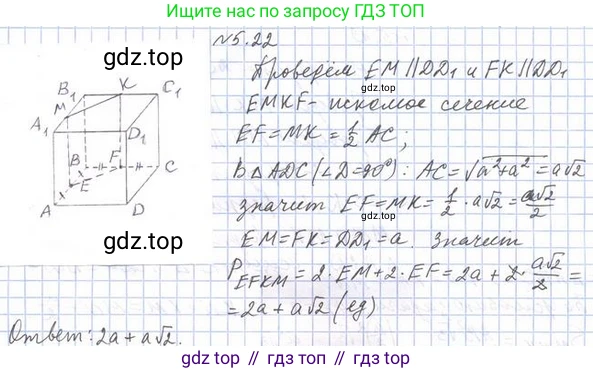 Ищите нас по запросу ГДЗ ТОП
gdz.top
N5.22
Проведём EM||DD₁ и FK||DD₁
EMKF - искомое сечение
EF=MK=1/2 AC;
В △ADC (∠D=90°): AC=√a²+a²=a√2
значит EF=MK=1/2·a√2=a√2/2
EM=FK=DD₁=a. Значит
P_EFKM=2·EM+2·EF=2a+2·a√2/2=
=2a+a√2 (ед)
B₁ K C₁
M
A₁ D₁
B F C
E
A D
gdz.top
Ответ: 2a+a√2.
gdz.top // гдз топ // gdz.top // гдз топ